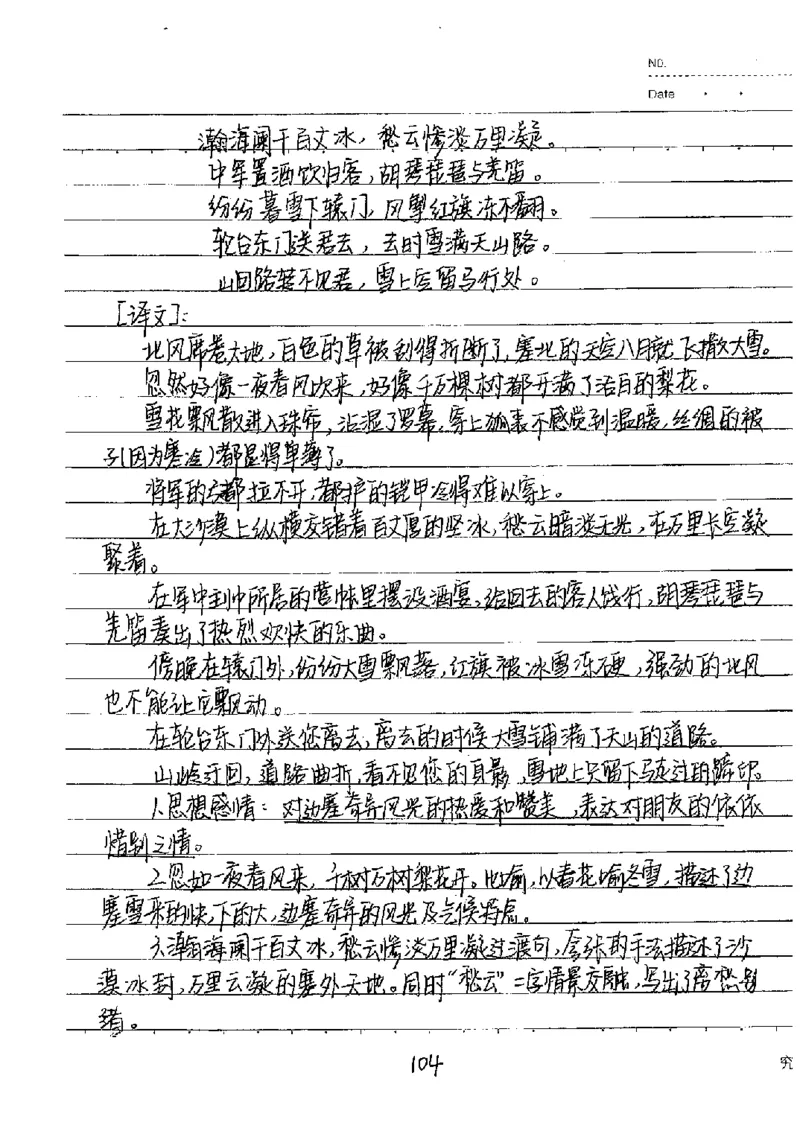 NO.
Date
瀚海阑干百丈冰，愁云惨淡万里凝。
中军置酒饮归客，胡琴琵琶与羌笛。
纷纷暮雪下辕门，风掣红旗冻不翻。
轮台东门送君去，去时雪满天山路。
山回路转不见君，雪上空留马行处。
[译文]：
北风席卷大地，百色的草被刮得折断了，塞北的天空八月就飞撒大雪。
忽然好像一夜春风吹来，好像千万棵树都开满了洁白的梨花。
雪花飘散进入珠帘，沾湿了罗幕，穿上狐裘不感觉到温暖，丝绸的被
子(因为寒冷)都显得单薄了。
将军的弓都拉不开，都护的铠甲冷得难以穿上。
在大沙漠上纵横交错着百丈厚的坚冰，愁云暗淡无光，在万里长空凝
聚着。
在军中主帅所居的营帐里摆设酒宴，给回去的客人饯行，胡琴琵琶与
羌笛奏出了热烈欢快的乐曲。
傍晚在辕门外，纷纷大雪飘落，红旗被冰雪冻硬，强劲的北风
也不能让它飘动。
在轮台东门外送您离去，离去的时候大雪铺满了天山的道路。
山岭迂回，道路曲折，看不见您的身影，雪地上只留下马走过的蹄印。
1.思想感情：对边塞奇异风光的热爱和赞美，表达对朋友的依依
惜别之情。
2.忽如一夜春风来，千树万树梨花开。比喻，以春花喻冬雪，描述了边
塞雪来的快，下的大，边塞奇异的风光及气候特点。
3.瀚海阑干百丈冰，愁云惨淡万里凝过渡句，夸张的手法描述了沙
漠冰封，万里云凝的塞外天地。同时"愁云"二字情景交融，写出了离愁别
绪。
104
究